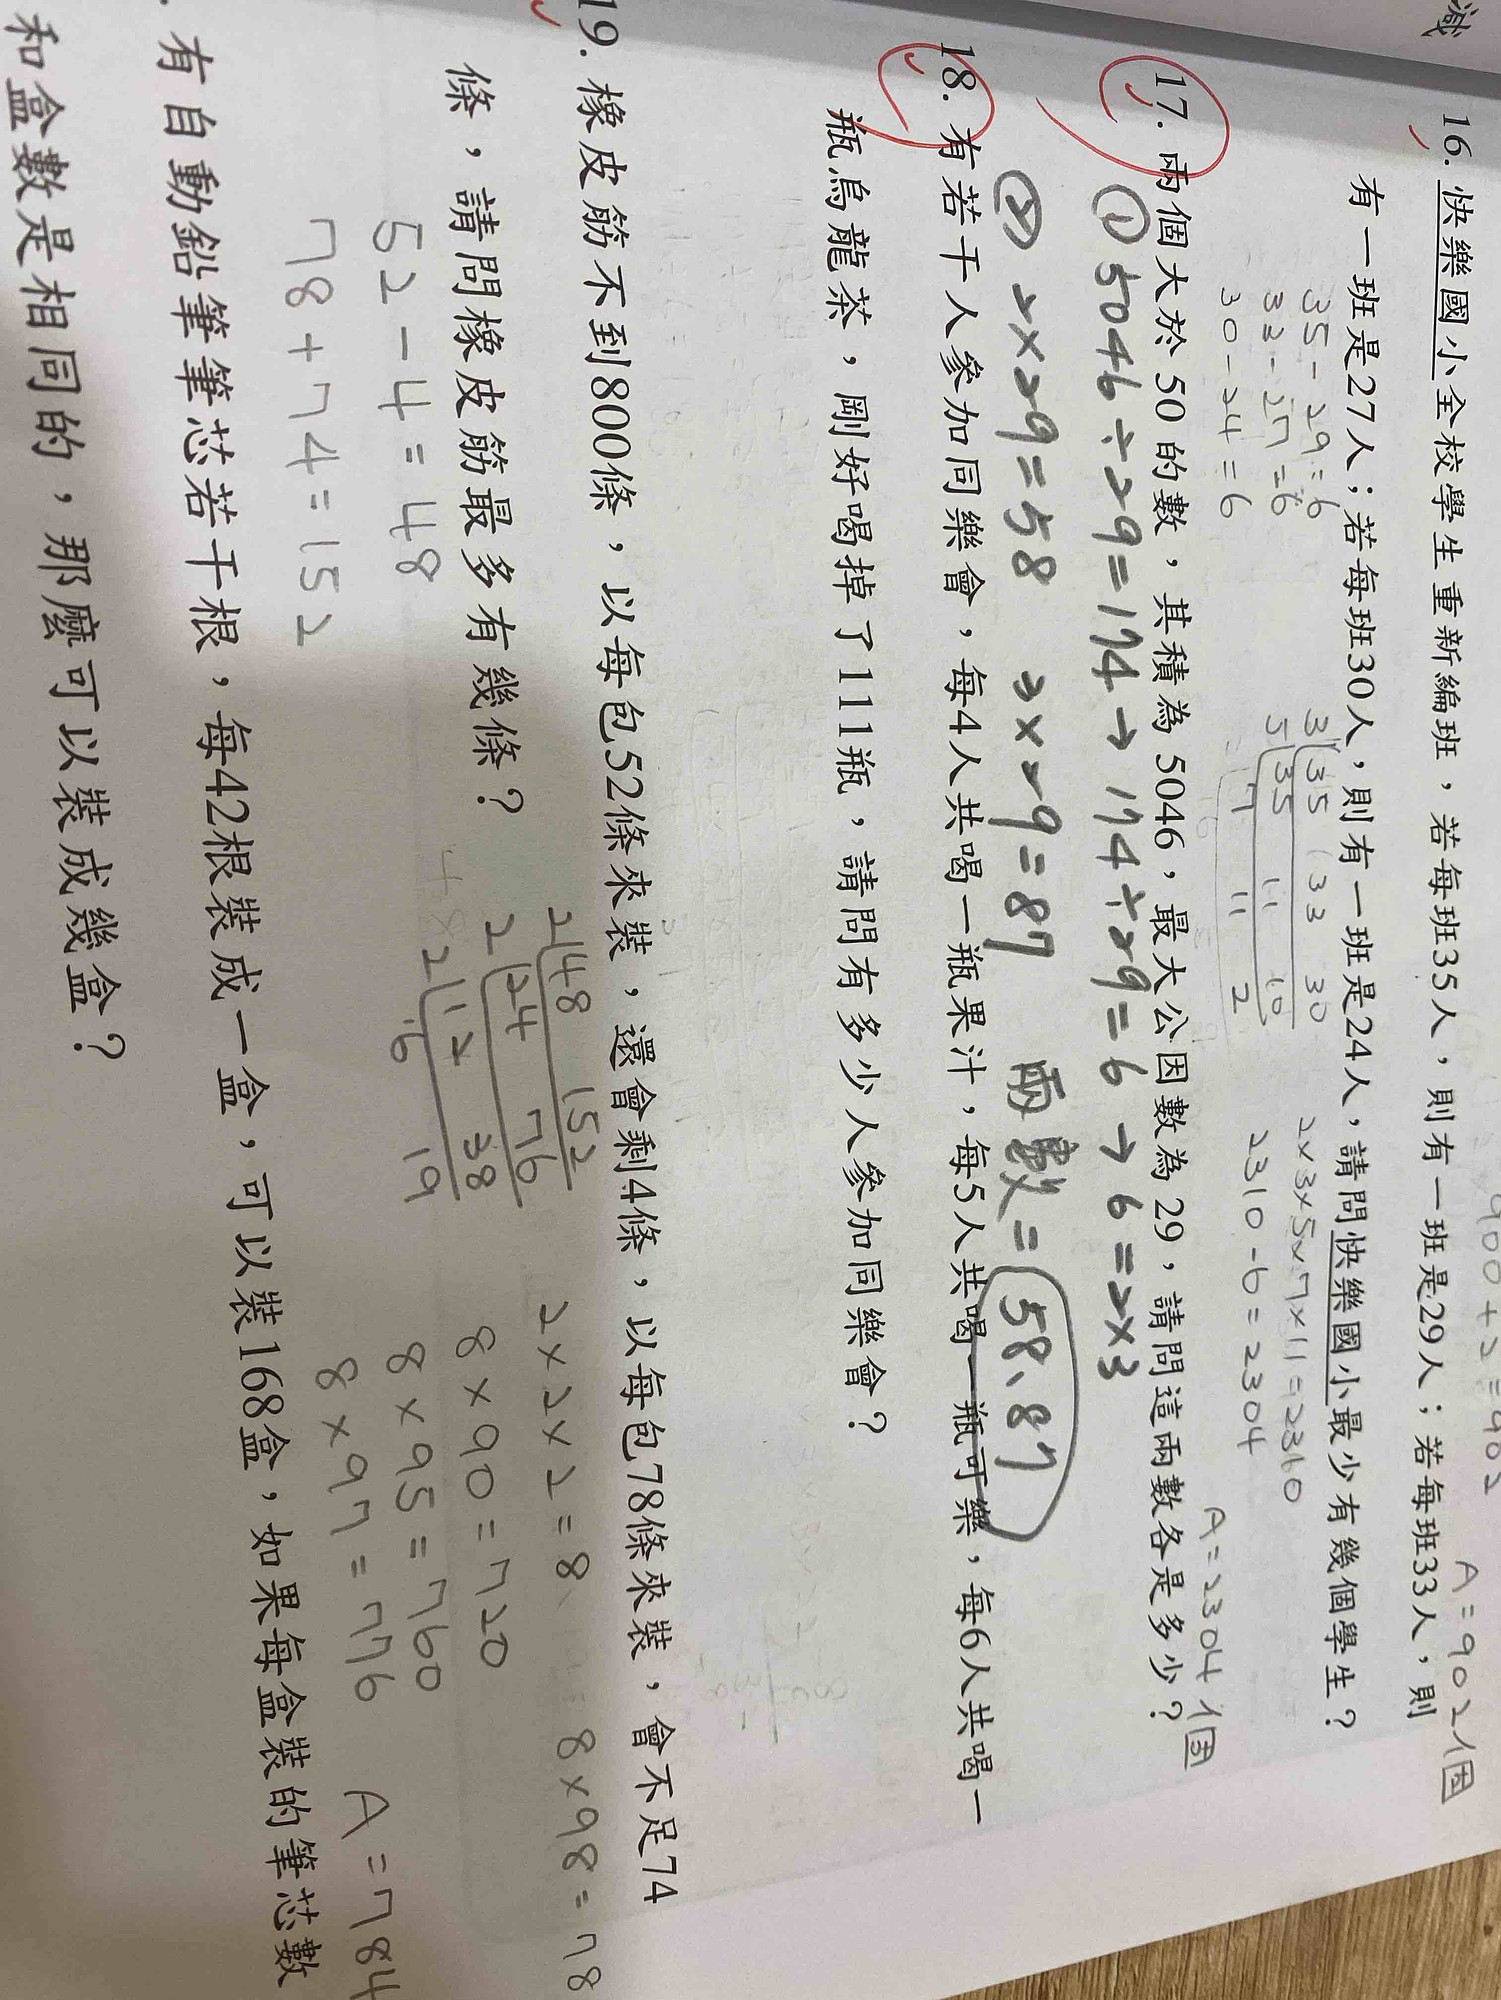 減
900+2=902
A=902個
16. 快樂國小全校學生重新編班，若每班35人，則有一班是29人；若每班33人，則
有一班是27人；若每班30人，則有一班是24人，請問快樂國小最少有幾個學生？
35-29=6
33-27=6
30-24=6
3 35 33 30
5 35 11 10
7 11 2
2×3×5×7×11=2310
2310-6=2304
A=2304個
17. 兩個大於50的數，其積為5046，最大公因數為29，請問這兩數各是多少？
① 5046÷29=174→174÷29=6→6=2×3
② 2×29=58 3×29=87 兩數=58、87
18. 有若干人參加同樂會，每4人共喝一瓶果汁，每5人共喝一瓶可樂，每6人共喝一
瓶烏龍茶，剛好喝掉了111瓶，請問有多少人參加同樂會？
19. 橡皮筋不到800條，以每包52條來裝，還會剩4條，以每包78條來裝，會不足74
條，請問橡皮筋最多有幾條？
52-4=48
78+74=152
2 48 152
2 24 76
2 12 38
6 19
2×2×2=8
8×90=720
8×95=760
8×97=776
8×98=78
A=784
有自動鉛筆筆芯若干根，每42根裝成一盒，可以裝168盒，如果每盒裝的筆芯數
和盒數是相同的，那麼可以裝成幾盒？